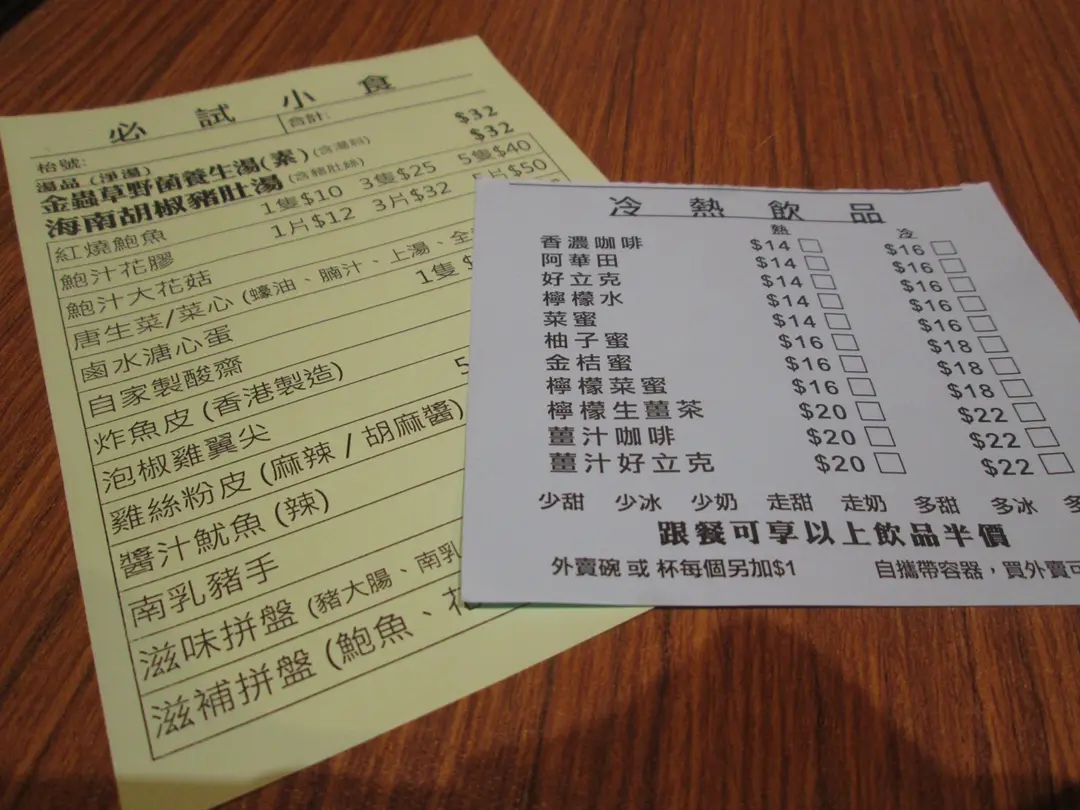 必試小食
枱號:
合計:
湯品 (淨湯)
金蟲草野菌養生湯(素) (含湯料) $32
海南胡椒豬肚湯 (含豬肚絲) $32
紅燒鮑魚 1隻$10 3隻$25 5隻$40
鮑汁花膠 1片$12 3片$32 5片$50
鮑汁大花菇
唐生菜/菜心 (蠔油、腩汁、上湯、全
鹵水溏心蛋 1隻
自家製酸齋
炸魚皮 (香港製造)
泡椒雞翼尖
雞絲粉皮 (麻辣 / 胡麻醬)
醬汁魷魚 (辣)
南乳豬手
滋味拼盤 (豬大腸、南乳
滋補拼盤 (鮑魚、
冷熱飲品
熱 冷
香濃咖啡 $14 $16
阿華田 $14 $16
好立克 $14 $16
檸檬水 $14 $16
菜蜜 $14 $16
柚子蜜 $16 $18
金桔蜜 $16 $18
檸檬菜蜜 $16 $18
檸檬生薑茶 $20 $22
薑汁咖啡 $20 $22
薑汁好立克 $20 $22
少甜 少冰 少奶 走甜 走奶 多甜 多冰
跟餐可享以上飲品半價
外賣碗 或 杯每個另加$1 自攜帶容器，買外賣可